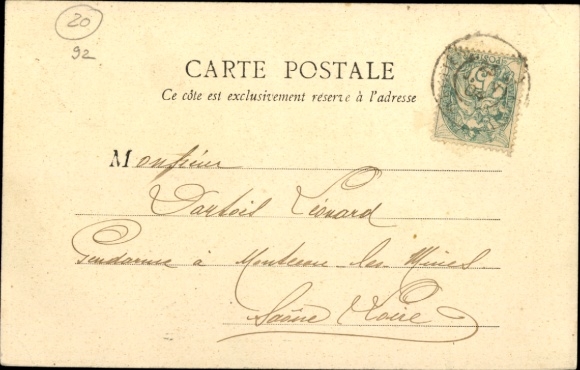 20
92
CARTE POSTALE
Ce côté est exclusivement réservé à l'adresse
Monsieur
Dartois Léonard
Gendarme à Montceau-les-Mines
Saône Loire